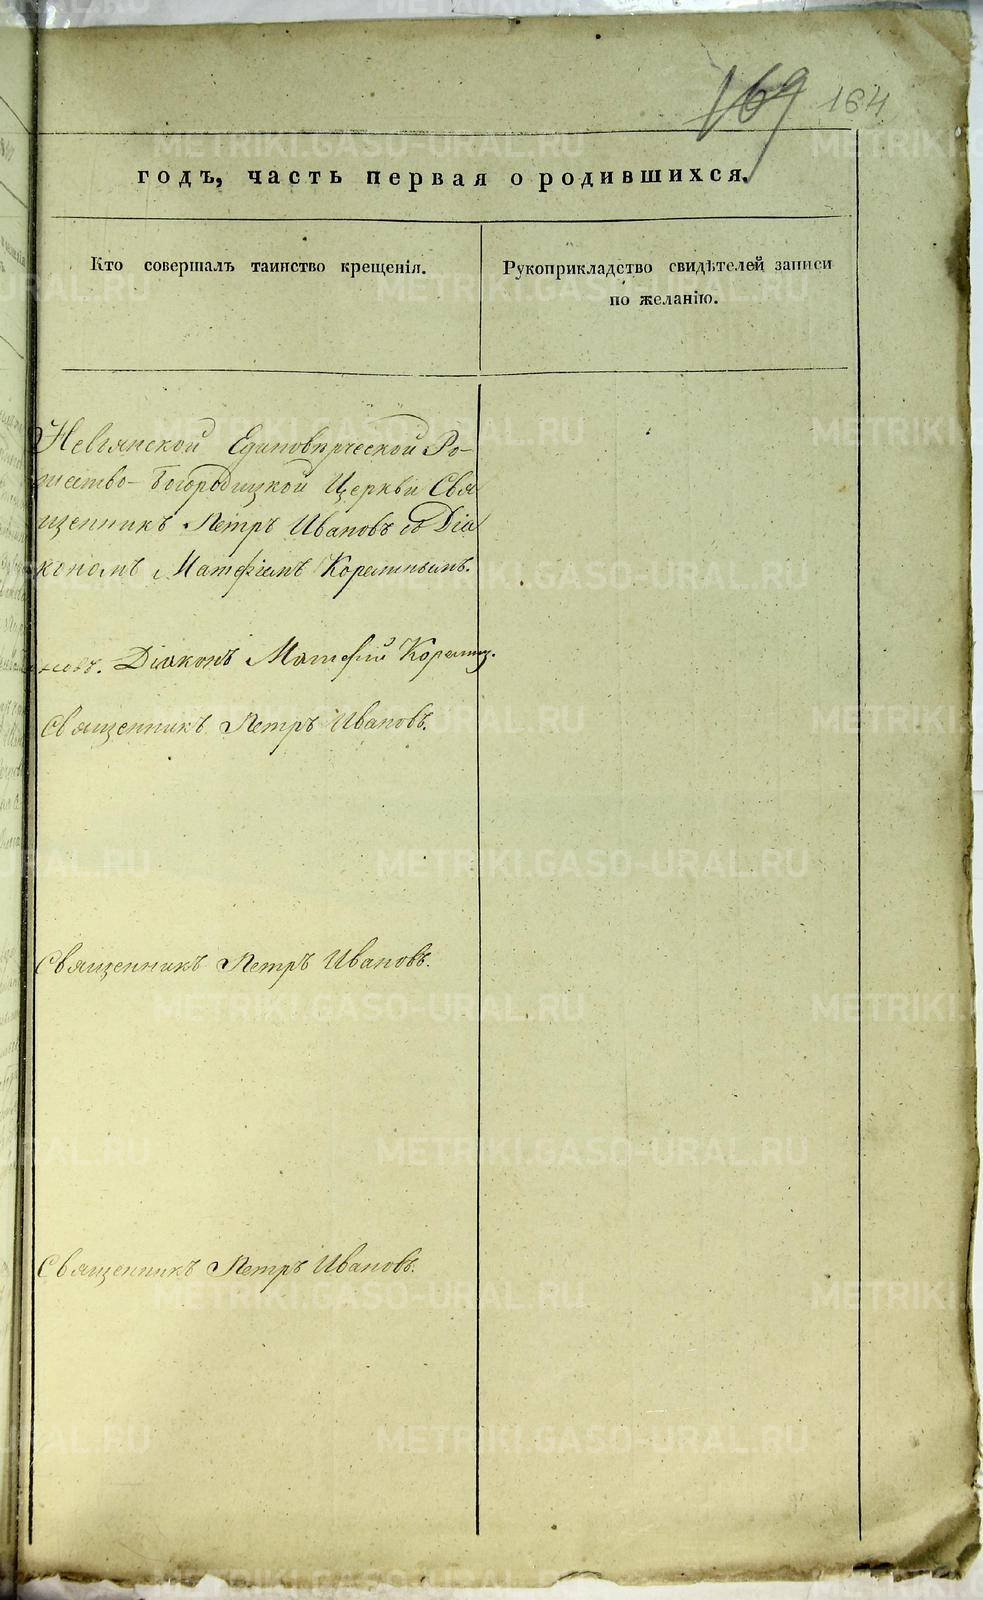 169 164
годъ, часть первая о родившихся.
Кто совершалъ таинство крещенія.
Рукоприкладство свидѣтелей записи
по желанію.
Невьянской Единовѣрческой Ро-
жество-Богородицкой Церкви Свя
щенникъ Петръ Ивановъ со Діа
кономъ Матфіемъ
Діаконъ Матфій
Священникъ Петръ Ивановъ.
Священникъ Петръ Ивановъ.
Священникъ Петръ Ивановъ.
METRIKI.GASO-URAL.RU